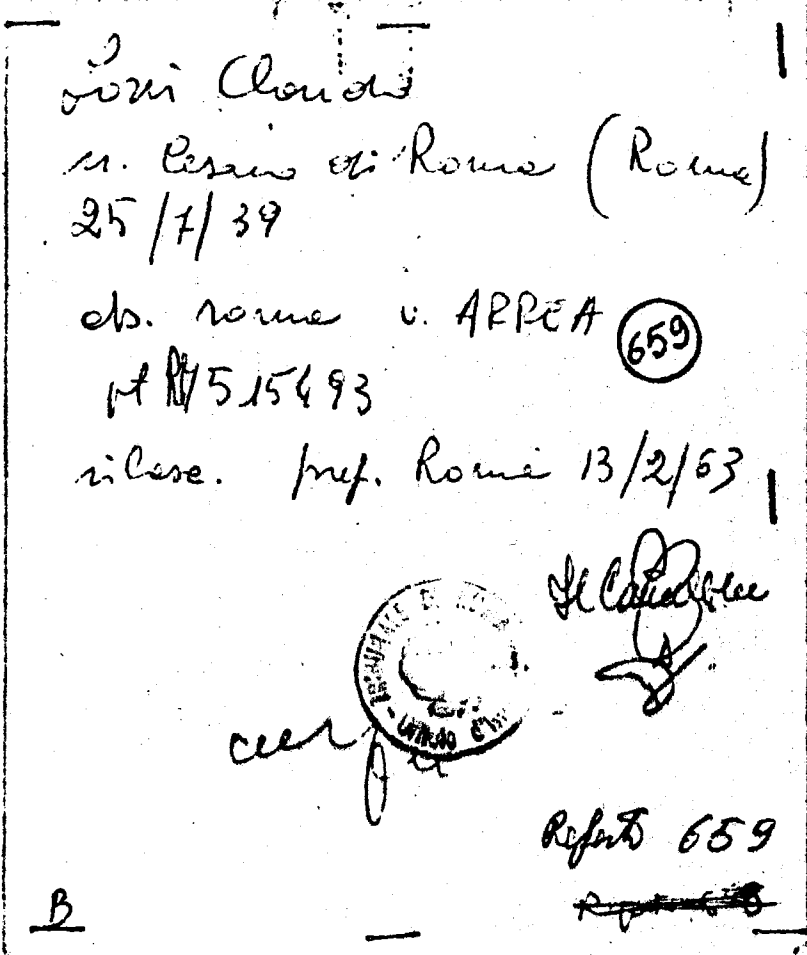 Claudio
n. Cesano di Roma (Roma)
25/7/39
ab. roma v. ARPEA 659
pt RM 515493
rilasc. pref. Roma 13/2/63
Il Cancelliere
TRIBUNALE DI ROMA
Reperto 659
B